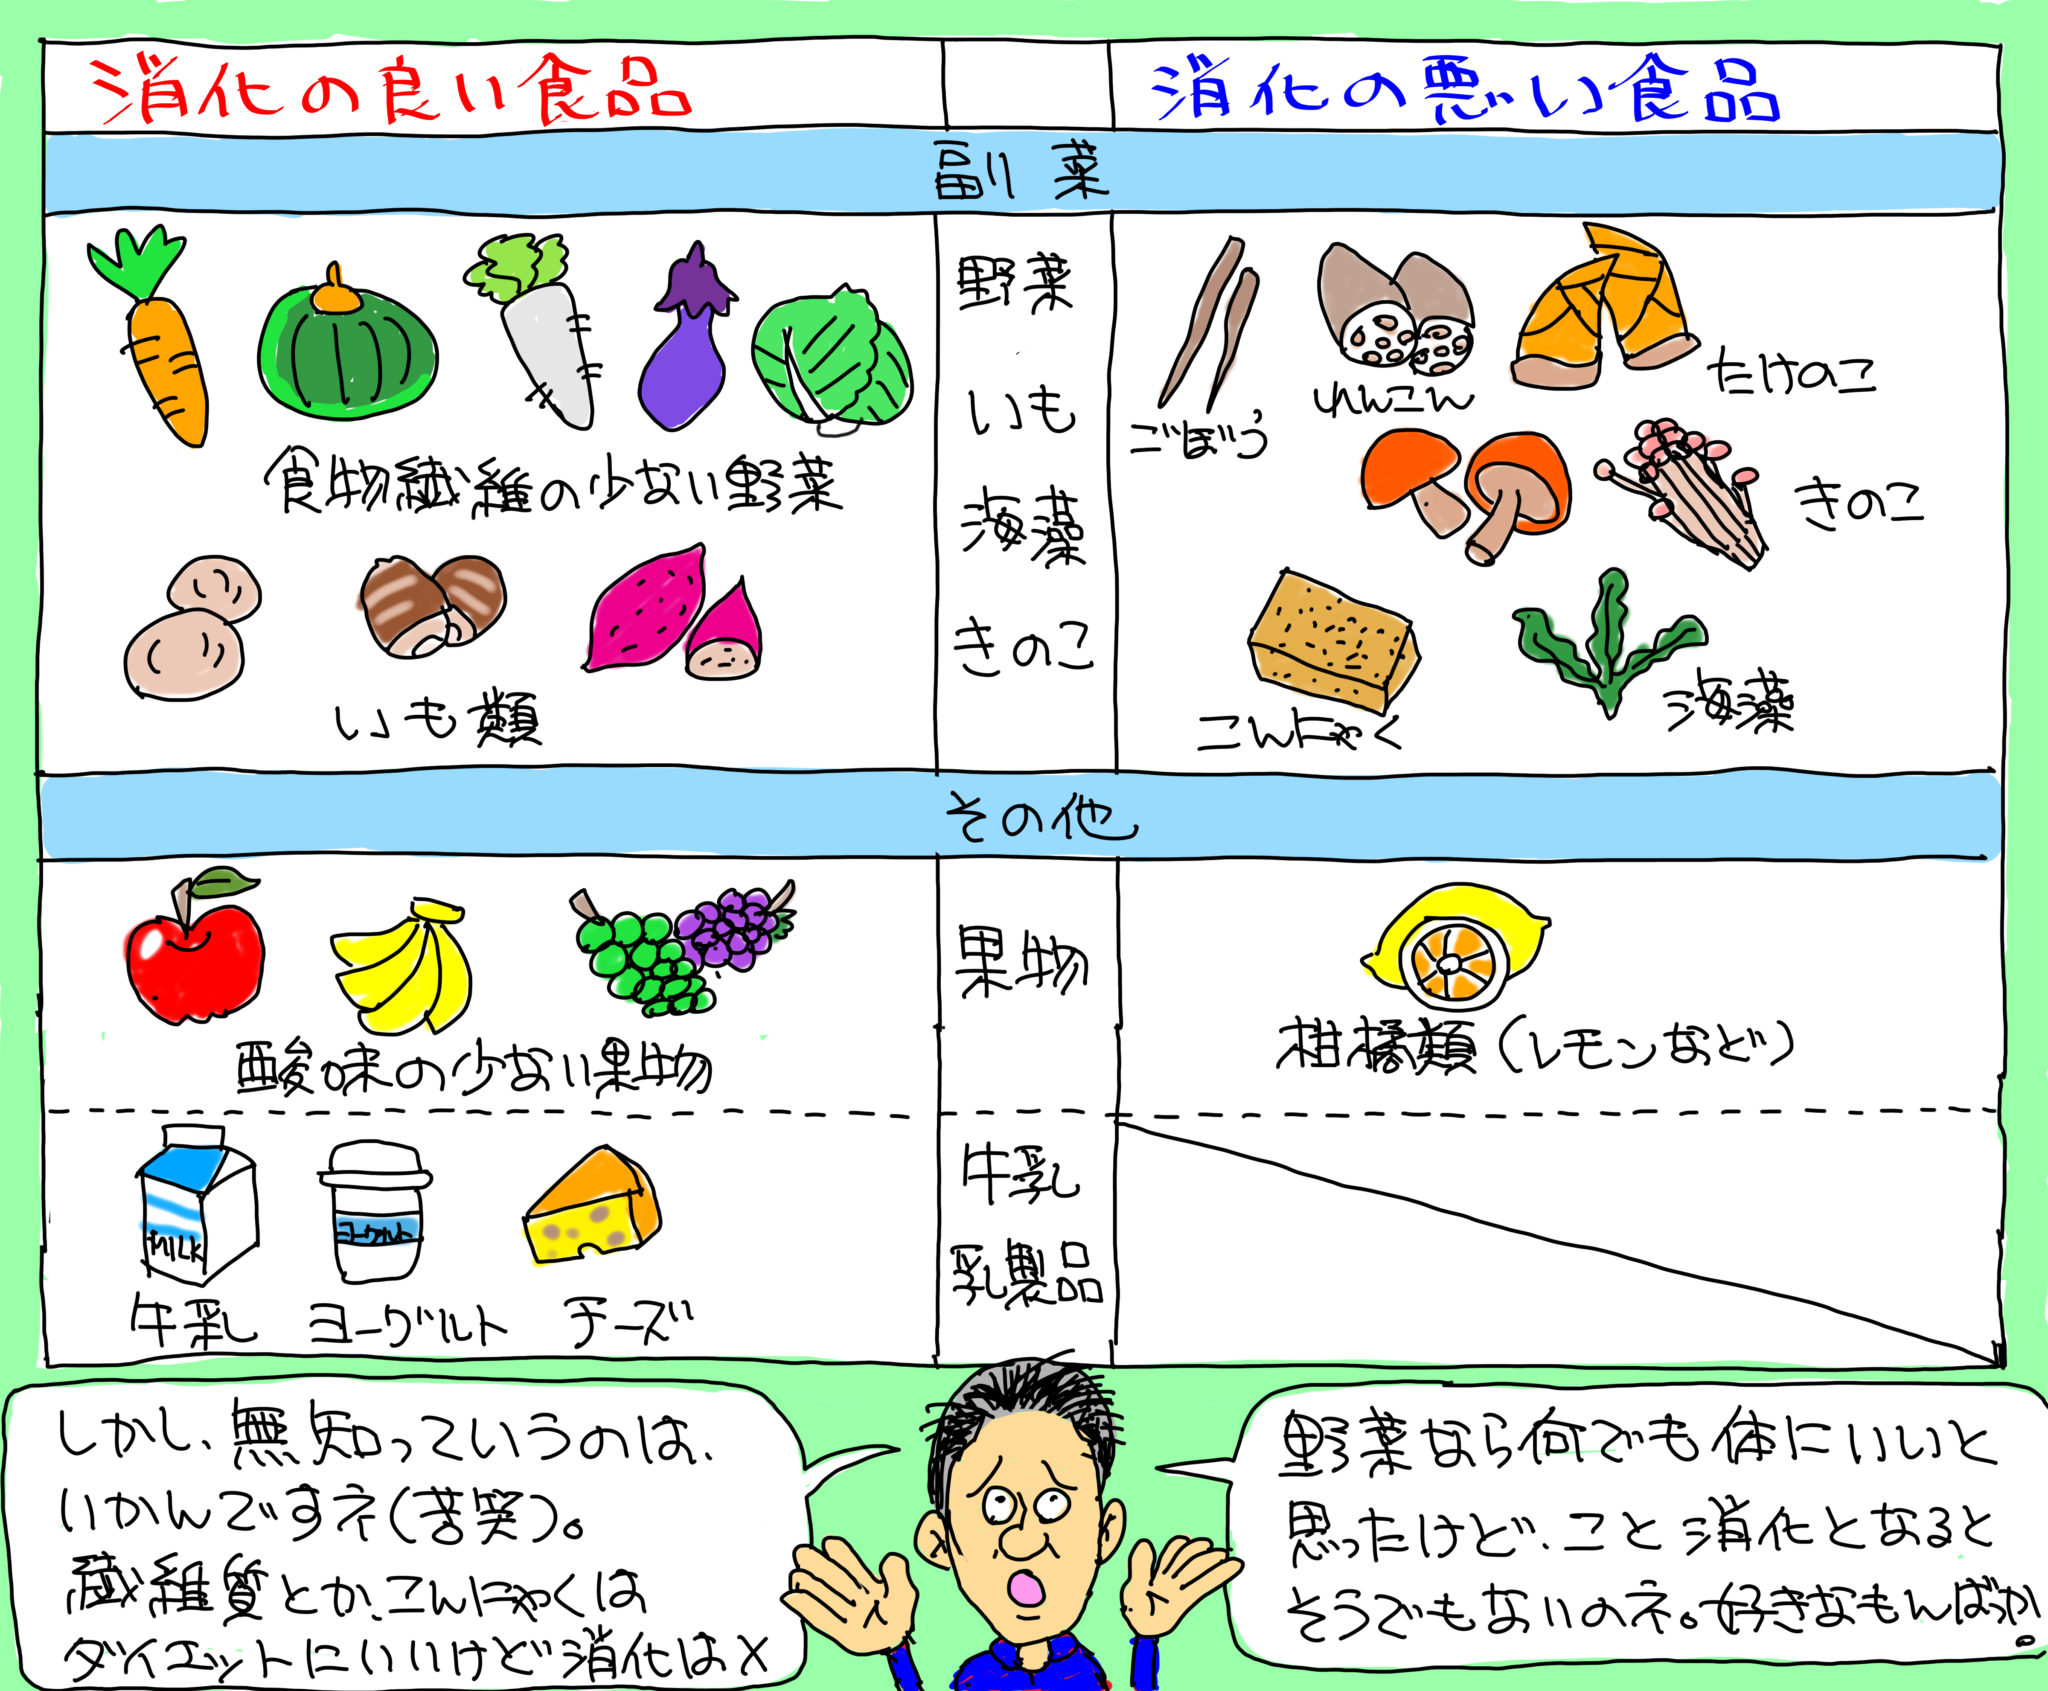 消化の良い食品
消化の悪い食品
副菜
食物繊維の少ない野菜
いも類
野菜
いも
海藻
きのこ
ごぼう
れんこん
たけのこ
きのこ
こんにゃく
海藻
その他
酸味の少ない果物
果物
柑橘類(レモンなど)
MILK
ヨーグルト
牛乳
ヨーグルト
チーズ
牛乳
乳製品
しかし、無知っていうのは、
いかんですネ(苦笑)。
繊維質とか、こんにゃくは
ダイエットにいいけど消化は×
野菜なら何でも体にいいと
思ったけど、こと消化となると
そうでもないのネ。好きなもんばっか。